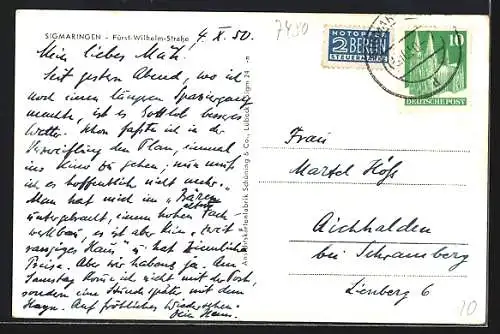 SIGMARINGEN - Fürst-Wilhelm-Straße
4. X. 50.
7480
Mein liebes Muh.
Seit gestern Abend, wo ich
noch einen längeren Spaziergang
machte, ist es Gottlob besseres
Wetter. Schon faßte ich in der
Verzweiflung den Plan, einmal
ins Kino zu gehen; nun muß
ich es hoffentlich nicht mehr.
Man hat mich im „Bären"
untergebracht, einem hohen alten Fach-
werkbau, es ist aber kein „zweit
rangiges Haus" u. hat ziemliche
Preise. Aber wir haben's ja. Am
Samstag komm ich nicht mit der Post,
sondern eine Stunde später mit dem
Auf fröhliches Wiedersehen.
Dein Hans.
Ansichtskartenfabrik Schöning & Co., Lübeck
NOTOPFER
2 BERLIN
STEUERMARKE
10
DEUTSCHE POST
Frau
Martel Höfs
Aichhalden
bei Schramberg
Lienberg 6
10